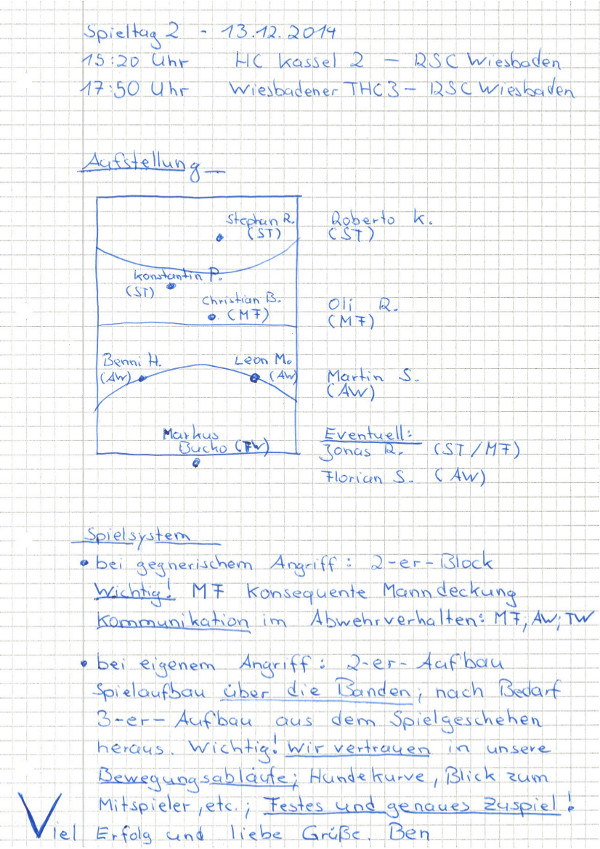 Spieltag 2 - 13.12.2014
15:20 Uhr HC Kassel 2 - RSC Wiesbaden
17:50 Uhr Wiesbadener THC 3 - RSC Wiesbaden
Aufstellung
Stephan R.
(ST)
Roberto K.
(ST)
Konstantin P.
(ST)
Christian B.
(MF)
Oli R.
(MF)
Benni H.
(AW)
Leon M.
(AW)
Martin S.
(AW)
Markus
Bucho (TW)
Eventuell:
Jonas R. (ST/MF)
Florian S. (AW)
Spielsystem
• bei gegnerischem Angriff: 2-er-Block
Wichtig! MF Konsequente Manndeckung
Kommunikation im Abwehrverhalten: MF, AW, TW
• bei eigenem Angriff: 2-er-Aufbau
Spielaufbau über die Banden, nach Bedarf
3-er-Aufbau aus dem Spielgeschehen
heraus. Wichtig! Wir vertrauen in unsere
Bewegungsabläufe; Hundekurve, Blick zum
Mitspieler, etc.; Festes und genaues Zuspiel!
Viel Erfolg und liebe Grüße. Ben